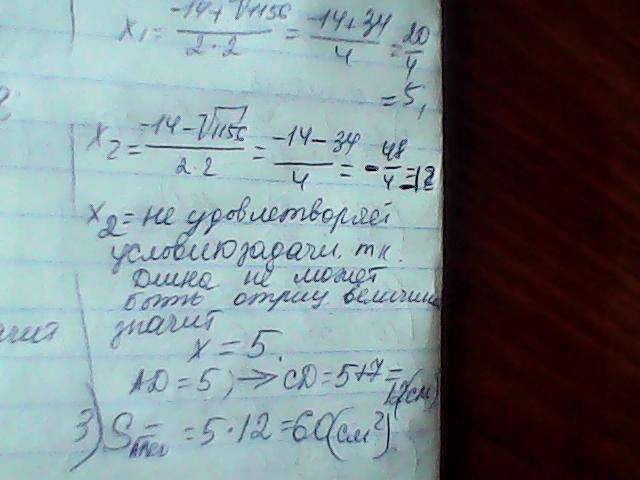 x₁ = (-14+√1156)/(2·2) = (-14+34)/4 = 20/4
= 5,
x₂ = (-14-√1156)/(2·2) = (-14-34)/4 = -48/4 = -12
x₂ = не удовлетворяет
условию задачи, т.к.
длина не может
быть отриц. величина
значит
x = 5.
AD = 5; → CD = 5+7 =
12(см)
3) S = = 5·12 = 60(см²)